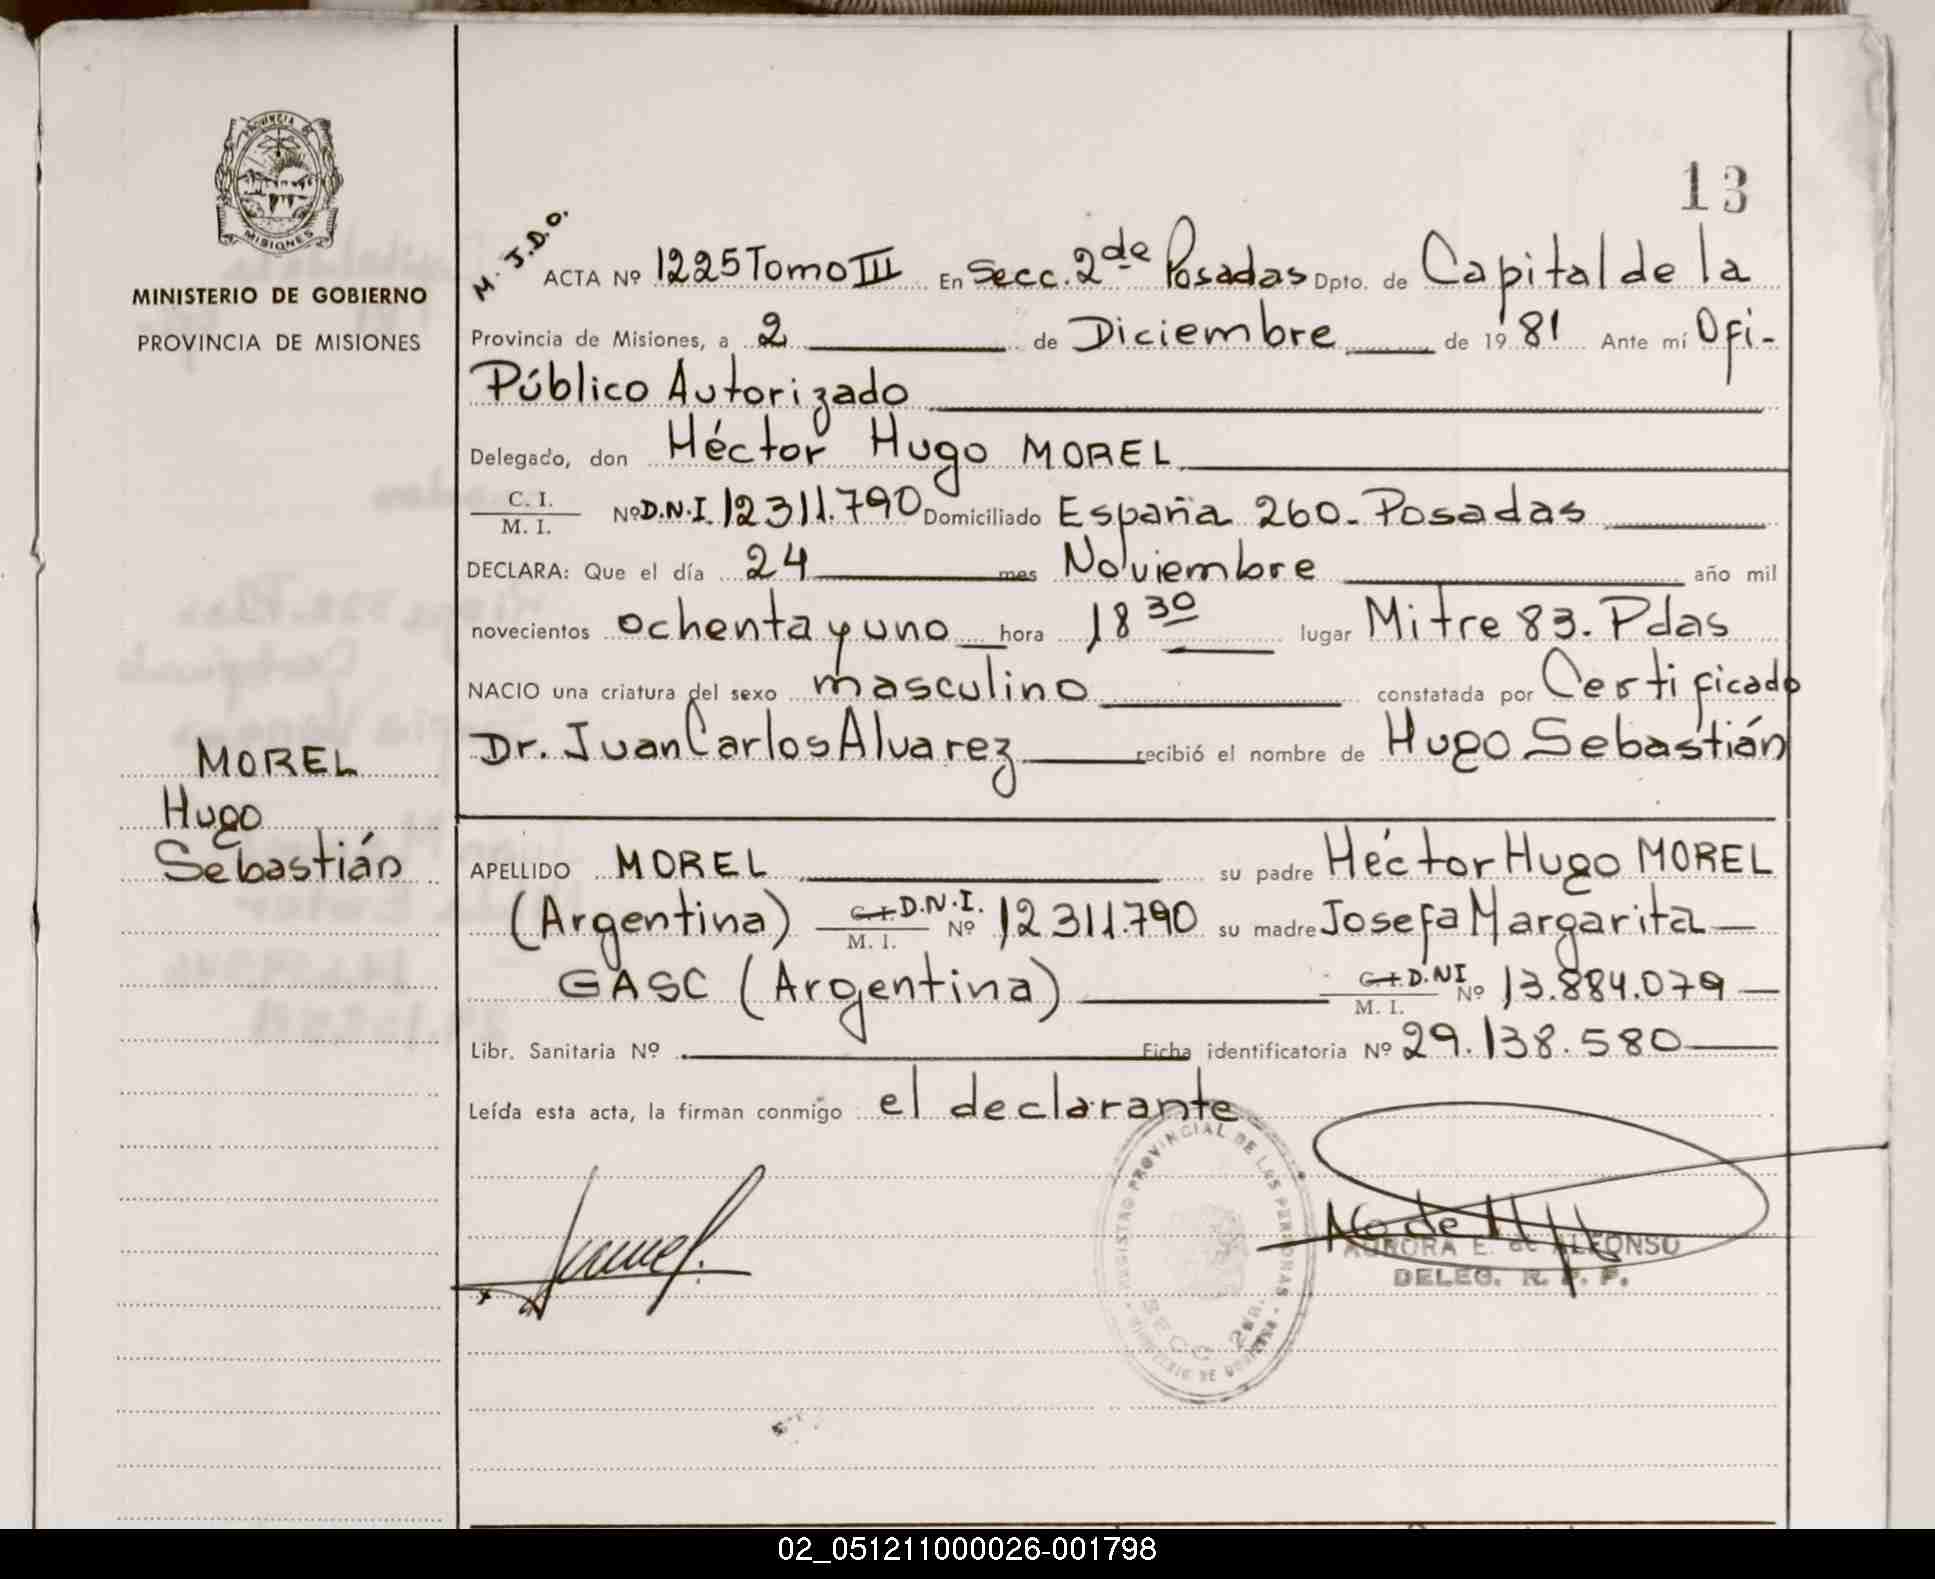 PROVINCIA DE
MISIONES
MINISTERIO DE GOBIERNO
PROVINCIA DE MISIONES
MOREL
Hugo
Sebastián
13
M. J.D.O.
ACTA Nº 1225 Tomo III En Secc. 2de Posadas Dpto. de Capital de la
Provincia de Misiones, a 2 de Diciembre de 1981 Ante mí Ofi-
Público Autorizado
Delegado, don Héctor Hugo MOREL
C. I.
M. I. Nº D.N.I. 12311.790 Domiciliado España 260. Posadas
DECLARA: Que el día 24 mes Noviembre año mil
novecientos ochenta y uno hora 18 30 lugar Mitre 83. Pdas
NACIO una criatura del sexo masculino constatada por Certificado
Dr. Juan Carlos Alvarez recibió el nombre de Hugo Sebastián
APELLIDO MOREL su padre Héctor Hugo MOREL
(Argentina) C.I. D.N.I. M. I. Nº 12311.790 su madre Josefa Margarita
GASC (Argentina) C.I. D.NI M. I. Nº 13.884.079
Libr. Sanitaria Nº Ficha identificatoria Nº 29.138.580
Leída esta acta, la firman conmigo el declarante
REGISTRO PROVINCIAL DE LAS PERSONAS
SECC. 2da.
MINISTERIO DE GOBIERNO
AURORA E. de ALFONSO
DELEG. R. P. P.
02_051211000026-001798